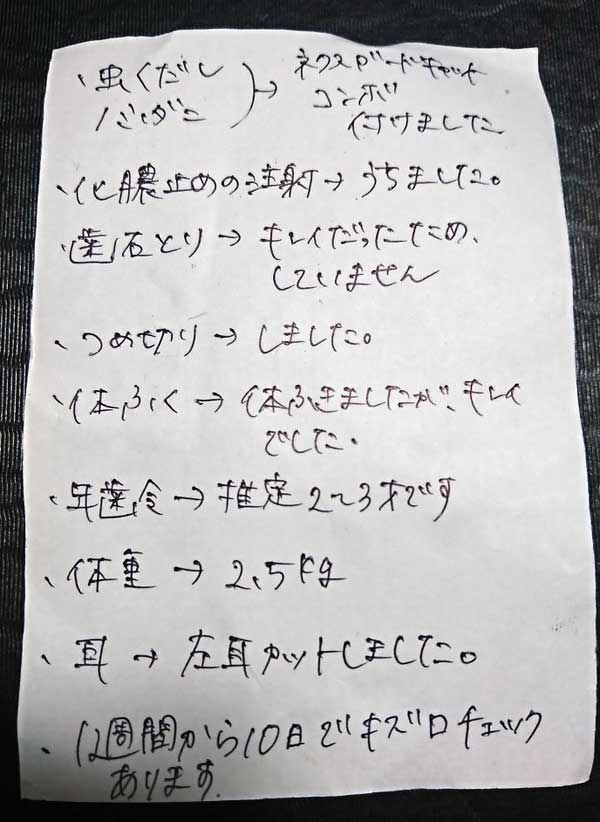 ・虫くだし
ノミ・ダニ
→ ネクスガードキャット
コンボ
付けました
・化膿止めの注射→うちました。
・歯石とり→キレイだったため、
していません
・つめ切り→しました。
・体ふく→体ふきましたが、キレイ
でした。
・年齢→推定2〜3才です
・体重→2.5kg
・耳→左耳カットしました。
・1週間から10日でキズ口チェック
あります。